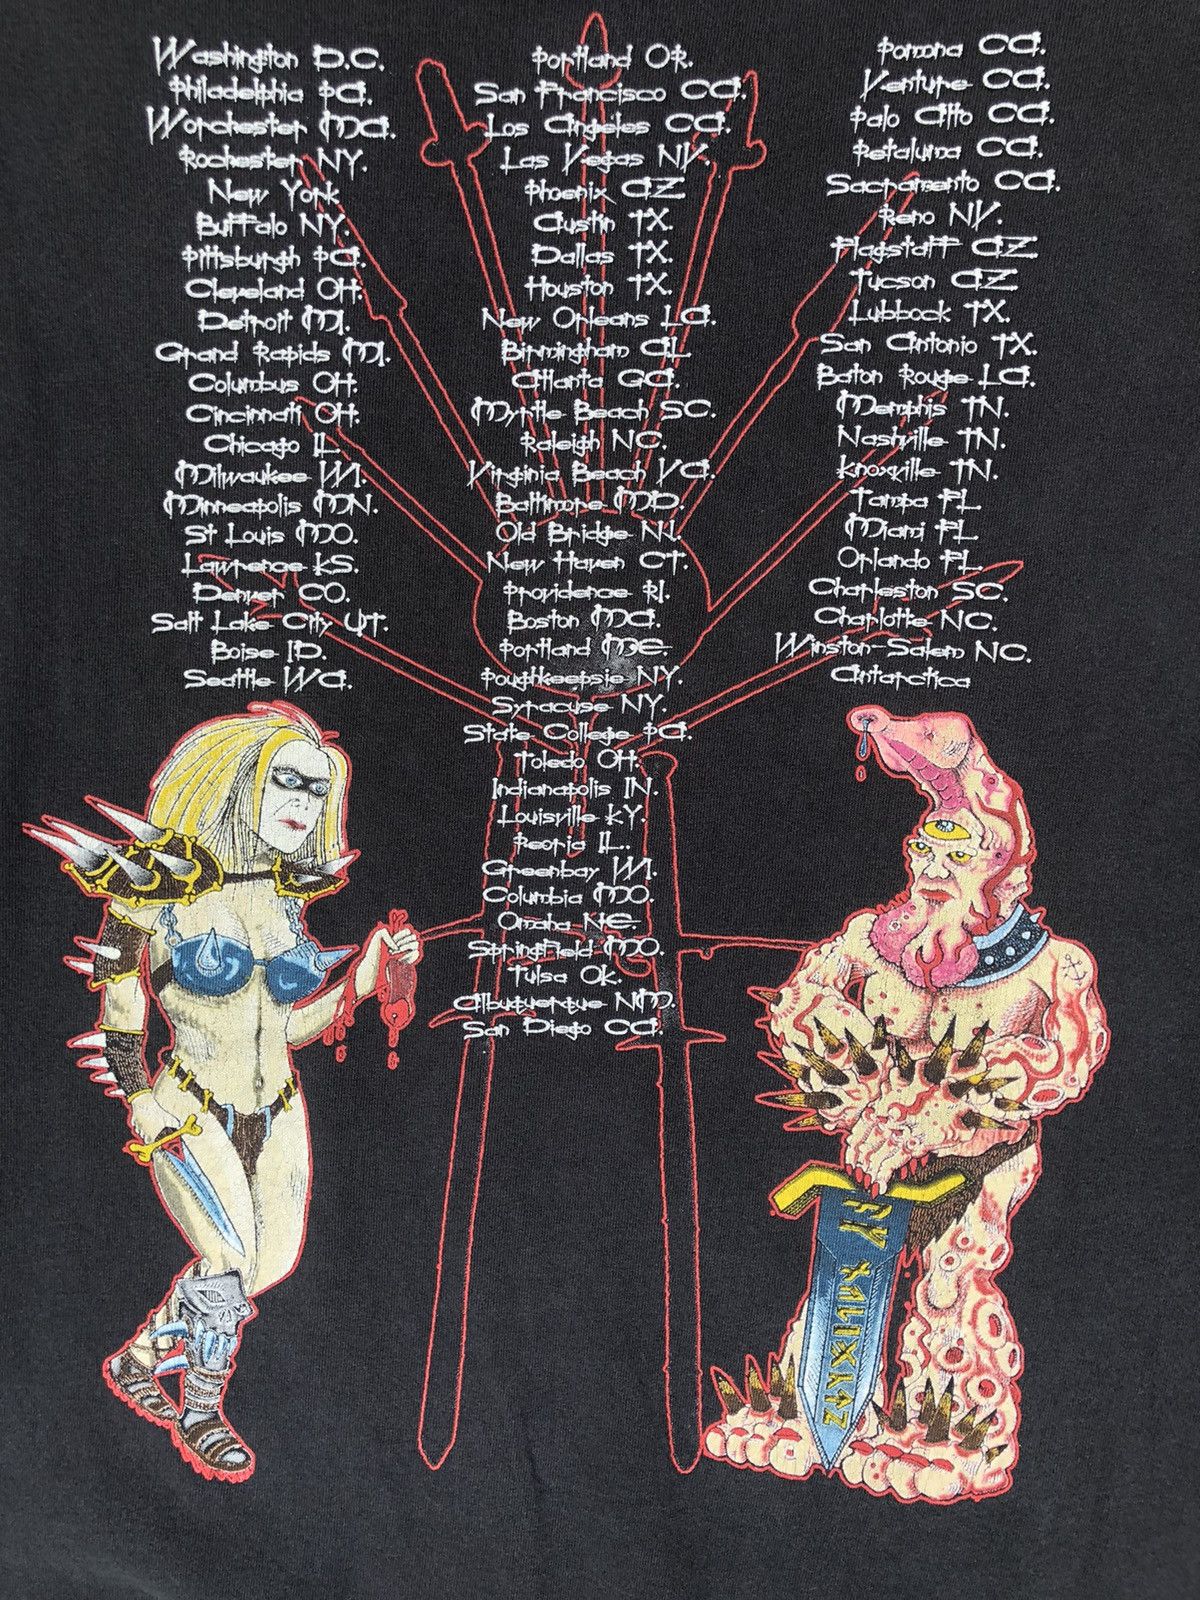 Washington D.C.
Philadelphia PA.
Worchester MA.
Rochester NY.
New York
Buffalo NY.
Pittsburgh PA.
Cleveland OH.
Detroit MI.
Grand Rapids MI.
Columbus OH.
Cincinnati OH.
Chicago IL.
Milwaukee WI.
Minneapolis MN.
St Louis MO.
Lawrence KS.
Denver CO.
Salt Lake City UT.
Boise ID.
Seattle WA.
Portland OR.
San Francisco CA.
Los Angeles CA.
Las Vegas NV.
Phoenix AZ
Austin TX.
Dallas TX.
Houston TX.
New Orleans LA.
Birmingham AL
Atlanta GA.
Myrtle Beach SC.
Raleigh NC.
Virginia Beach VA.
Baltimore MD.
Old Bridge NJ.
New Haven CT.
Providence RI.
Boston MA.
Portland ME.
Poughkeepsie NY.
Syracuse NY.
State College PA.
Toledo OH.
Indianapolis IN.
Louisville KY.
Peoria IL.
Greenbay WI.
Columbia MO.
Omaha NE.
Springfield MO.
Tulsa Ok.
Albuquerque NM.
San Diego CA.
Pomona CA.
Venture CA.
Palo Alto CA.
Petaluma CA.
Sacramento CA.
Reno NV.
Flagstaff AZ
Tucson AZ
Lubbock TX.
San Antonio TX.
Baton Rouge LA.
Memphis TN.
Nashville TN.
Knoxville TN.
Tampa FL
Miami FL
Orlando FL.
Charleston SC.
Charlotte NC.
Winston-Salem NC.
Antarctica